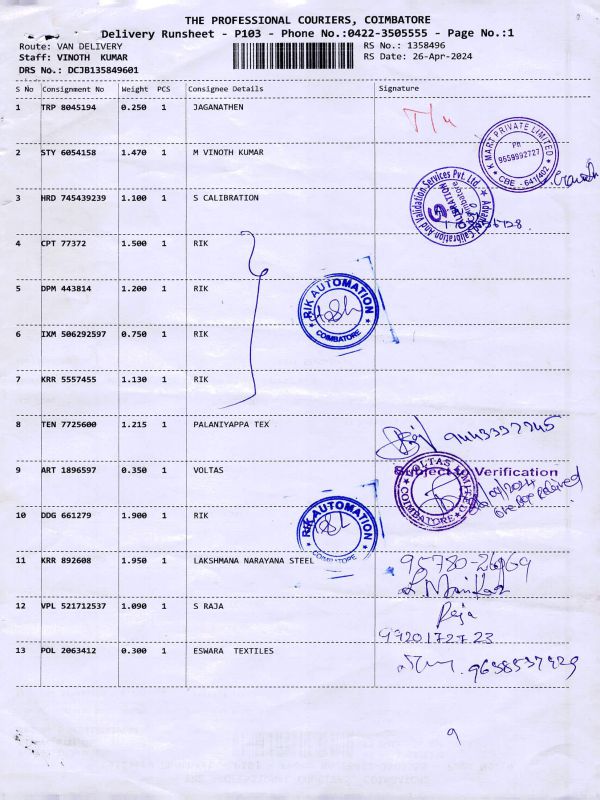 THE PROFESSIONAL COURIERS, COIMBATORE
Delivery Runsheet - P103 - Phone No.:0422-3505555 - Page No.:1
Route: VAN DELIVERY
RS No.: 1358496
Staff: VINOTH KUMAR
RS Date: 26-Apr-2024
DRS No.: DCJB135849601
S No Consignment No Weight PCS Consignee Details Signature
1 TRP 8045194 0.250 1 JAGANATHEN
K MART PRIVATE LIMITED
PH
9659592727
CBE - 641402
2 STY 6054158 1.470 1 M VINOTH KUMAR
3 HRD 745439239 1.100 1 S CALIBRATION
Advanced Calibration And Validation Services Pvt. Ltd.
4 CPT 77372 1.500 1 RIK
5 DPM 443814 1.200 1 RIK
RIK AUTOMATION
COIMBATORE
6 IXM 506292597 0.750 1 RIK
7 KRR 5557455 1.130 1 RIK
8 TEN 7725600 1.215 1 PALANIYAPPA TEX
9 ART 1896597 0.350 1 VOLTAS
Subject to Verification
VOLTAS LIMITED
COIMBATORE
10 DDG 661279 1.900 1 RIK
RIK AUTOMATION
COIMBATORE
11 KRR 892608 1.950 1 LAKSHMANA NARAYANA STEEL
12 VPL 521712537 1.090 1 S RAJA
Raja
9920172723
13 POL 2063412 0.300 1 ESWARA TEXTILES
9